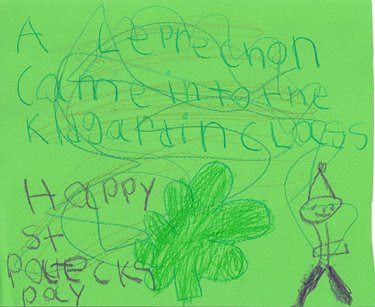 A Leprechon
Came into the
Kidgardin Class
Happy
St
Patecks
Day